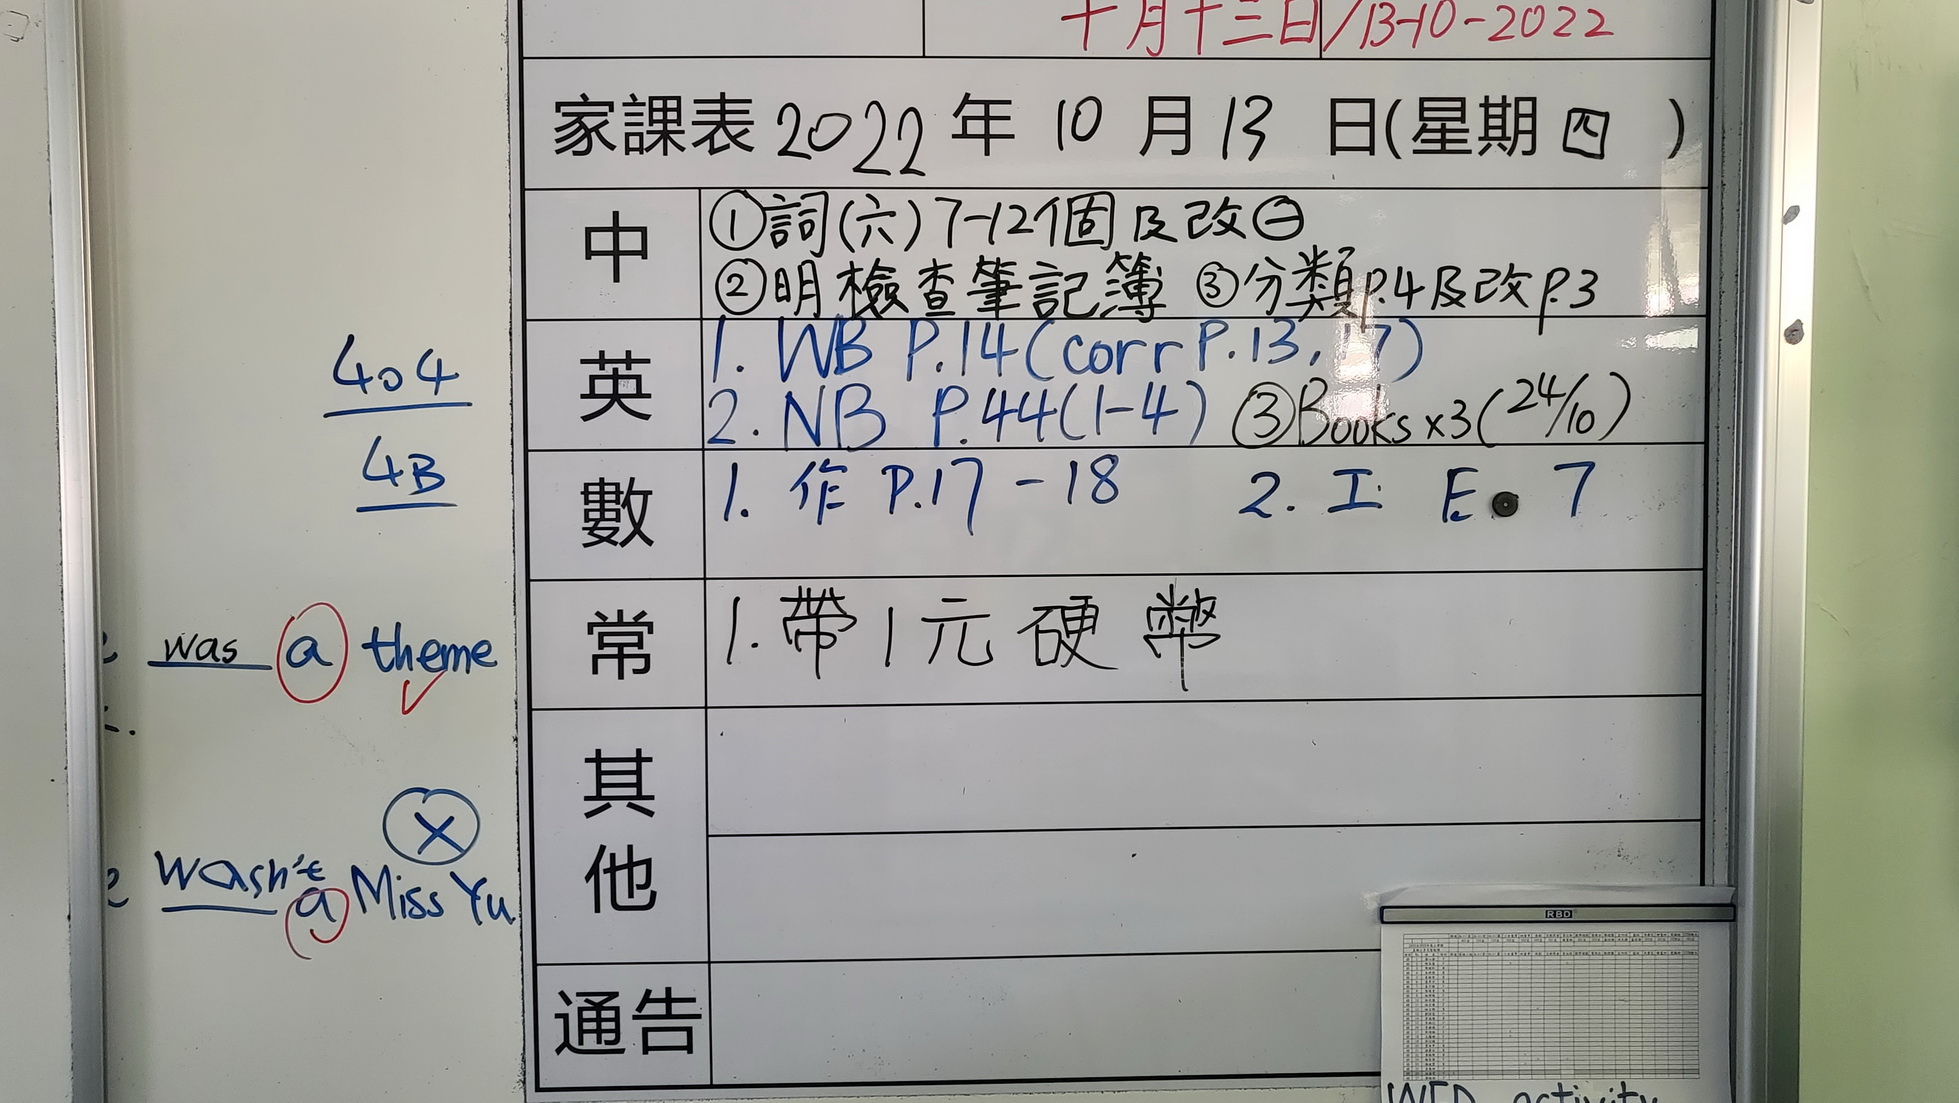 十月十三日/13-10-2022
家課表 2022 年 10 月 13 日(星期 四 )
中
①詞(六)7-12個及改㊀
②明檢查筆記簿 ③分類P.4及改P.3
英
1. WB P.14(corr P.13, 17)
2. NB P.44(1-4) ③Books x3(24/10)
數
1. 作 P.17-18 2. 工 E. 7
常
1. 帶1元硬幣
其他
通告
404
4B
was a theme
X
wasn't a Miss Yu
RBD
WED activity